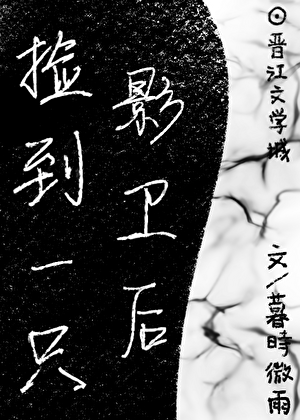 捡到一只
影卫后
晋江文学城
文/暮時微雨